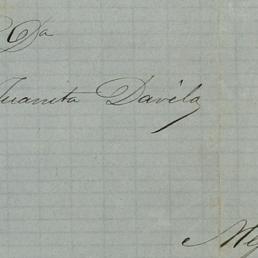 Da
Juanita Davila